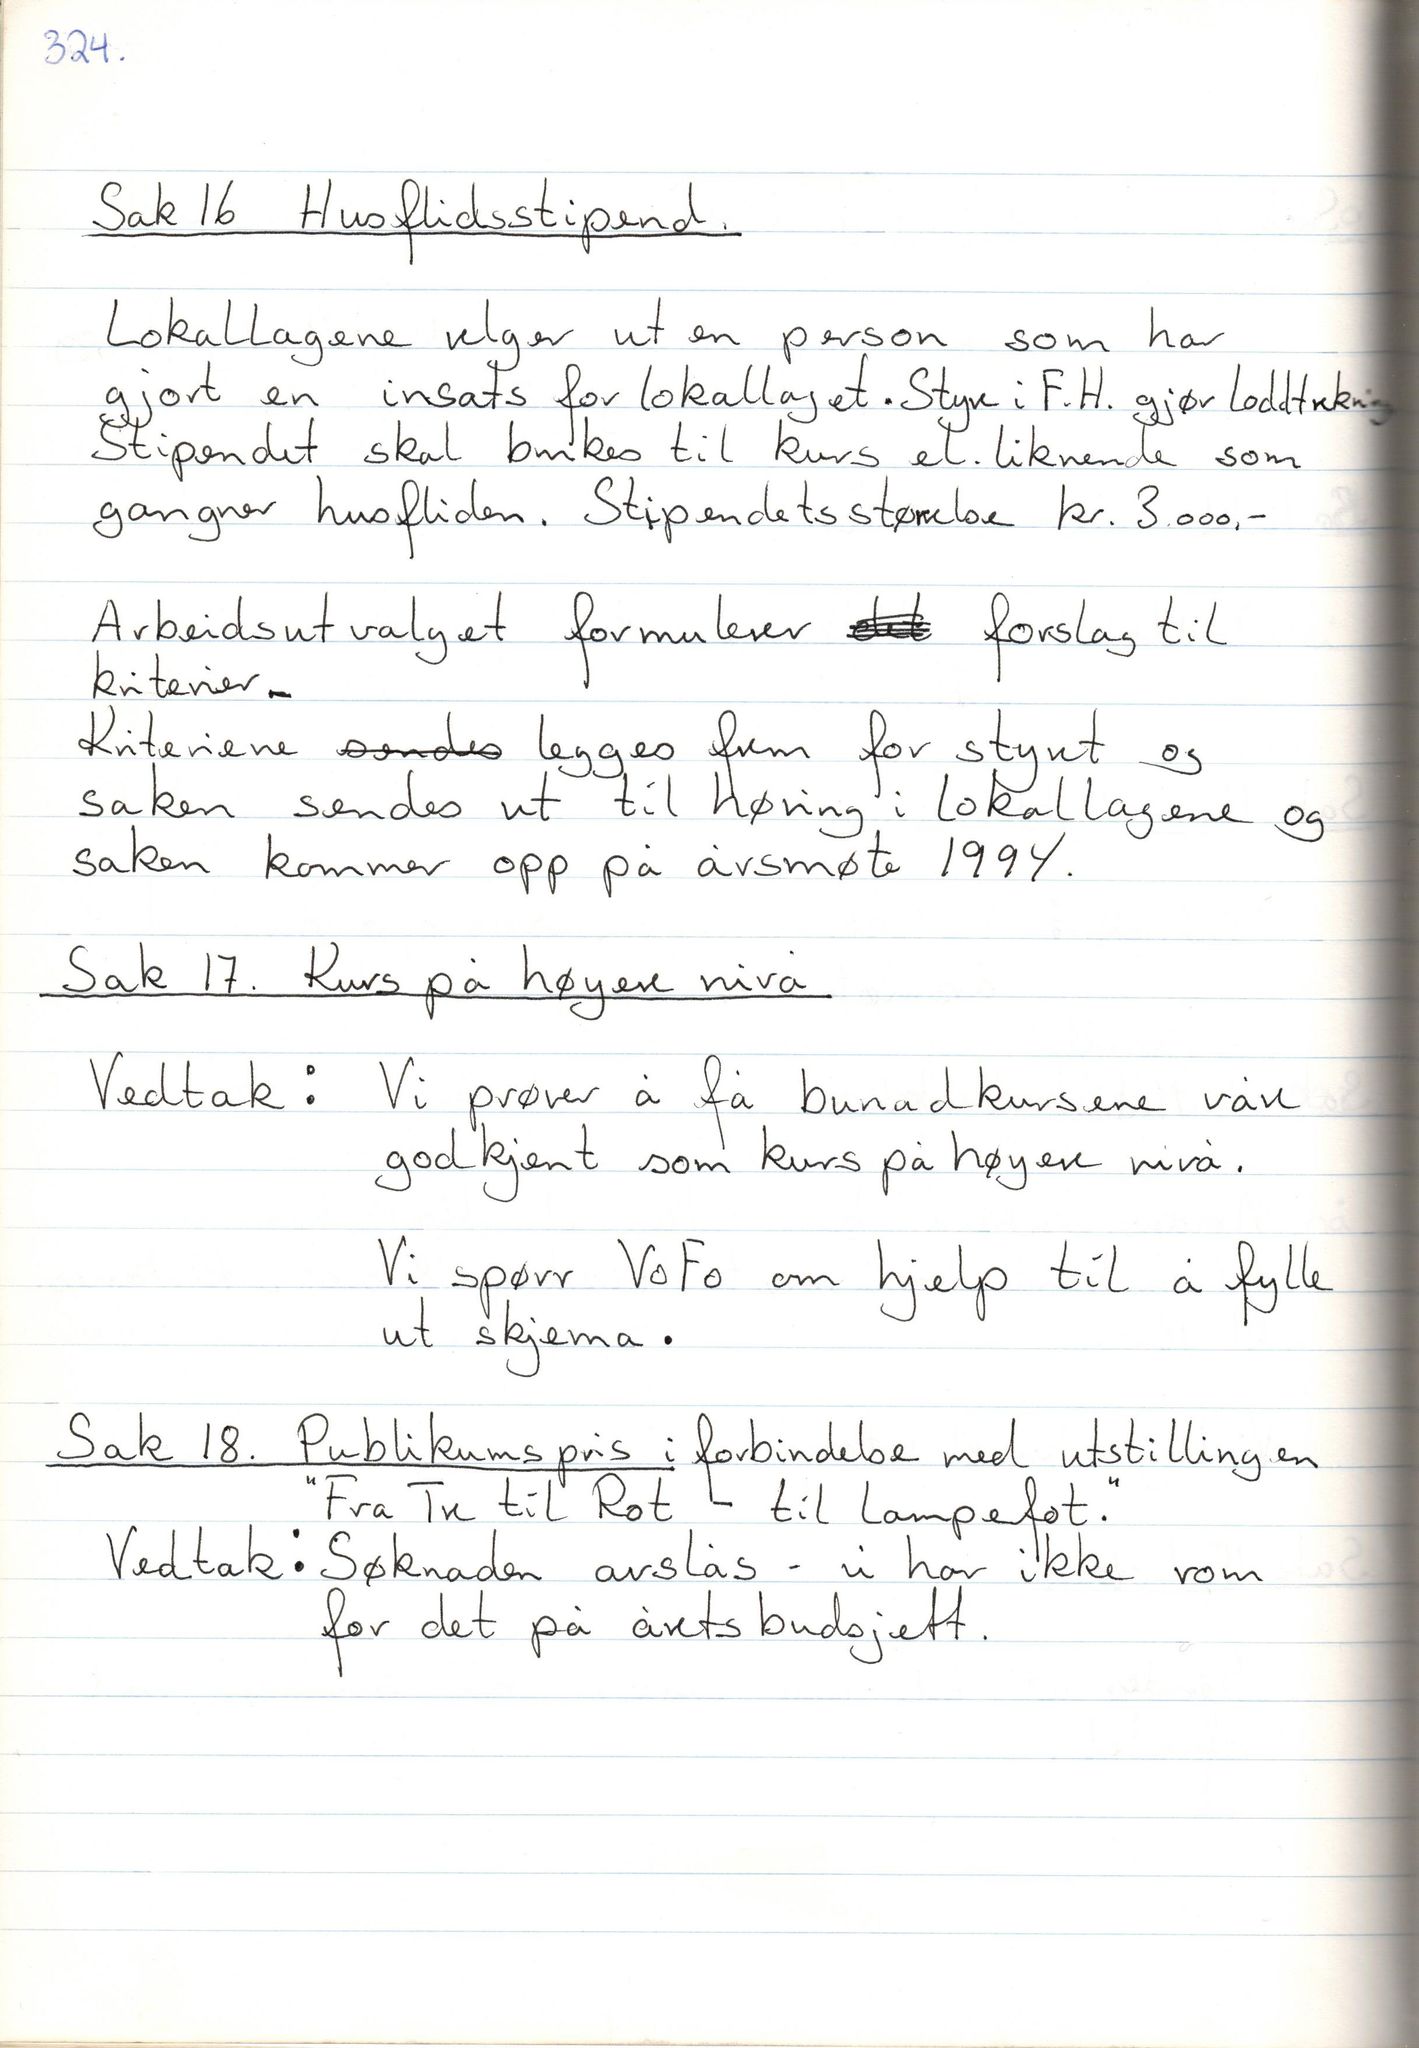 324.
Sak 16 Husflidsstipend.
Lokallagene velger ut en person som har
gjort en insats for lokallaget. Styre i F.H. gjør loddtrekning
Stipendet skal brukes til kurs el. liknende som
gangner husfliden. Stipendetsstørrelse kr. 3.000,-
Arbeidsutvalget formulerer det forslag til
kriterier.
Kriteriene sendes legges frem for styret og
saken sendes ut til høring i lokallagene og
saken kommer opp på årsmøte 1994.
Sak 17. Kurs på høyere nivå
Vedtak: Vi prøver å få bunadkursene våre
godkjent som kurs på høyere nivå.
Vi spørr VoFo om hjelp til å fylle
ut skjema.
Sak 18. Publikumspris i forbindelse med utstillingen
"Fra Tre til Rot - til lampefot."
Vedtak: Søknaden avslås - vi har ikke rom
for det på årets budsjett.